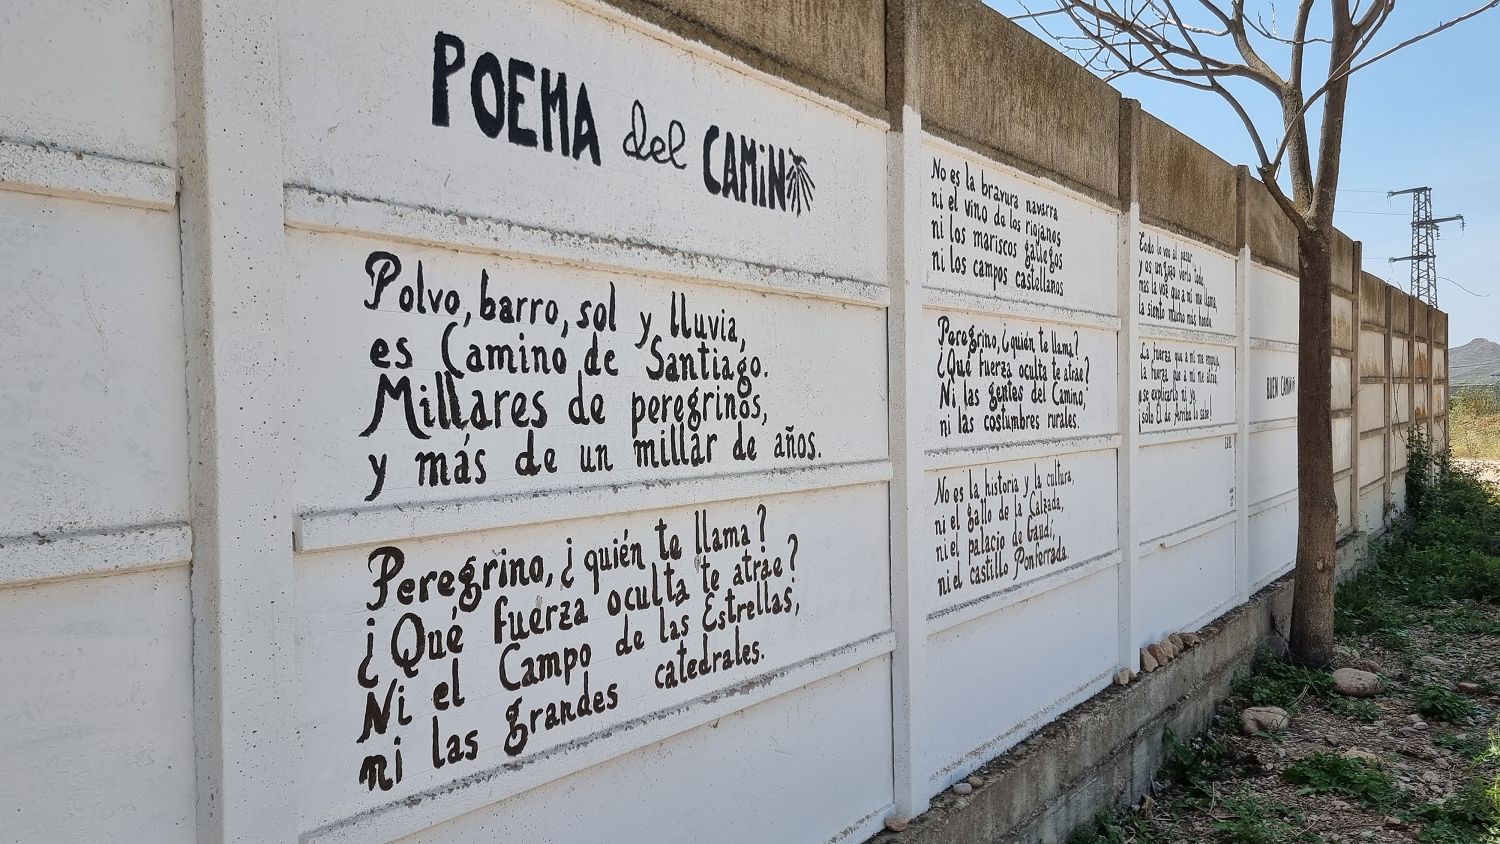 POEMA del CAMINO
Polvo, barro, sol y lluvia,
es Camino de Santiago.
Millares de peregrinos,
y más de un millar de años.
Peregrino, ¿quién te llama?
¿Qué fuerza oculta te atrae?
Ni el Campo de las Estrellas,
ni las grandes catedrales.
No es la bravura navarra
ni el vino de los riojanos
ni los mariscos gallegos
ni los campos castellanos
Peregrino, ¿quién te llama?
¿Qué fuerza oculta te atrae?
Ni las gentes del Camino,
ni las costumbres rurales.
No es la historia y la cultura,
ni el gallo de la Calzada,
ni el palacio de Gaudí,
ni el castillo Ponferrada
Todo lo veo al pasar,
y es un gozo verlo todo,
mas la voz que a mi me llama,
la siento mucho mas hondo.
La fuerza que a mi me empuja,
la fuerza que a mi me atrae,
no se explicarla ni yo
¡solo El de Arriba lo sabe!
BUEN CAMINO